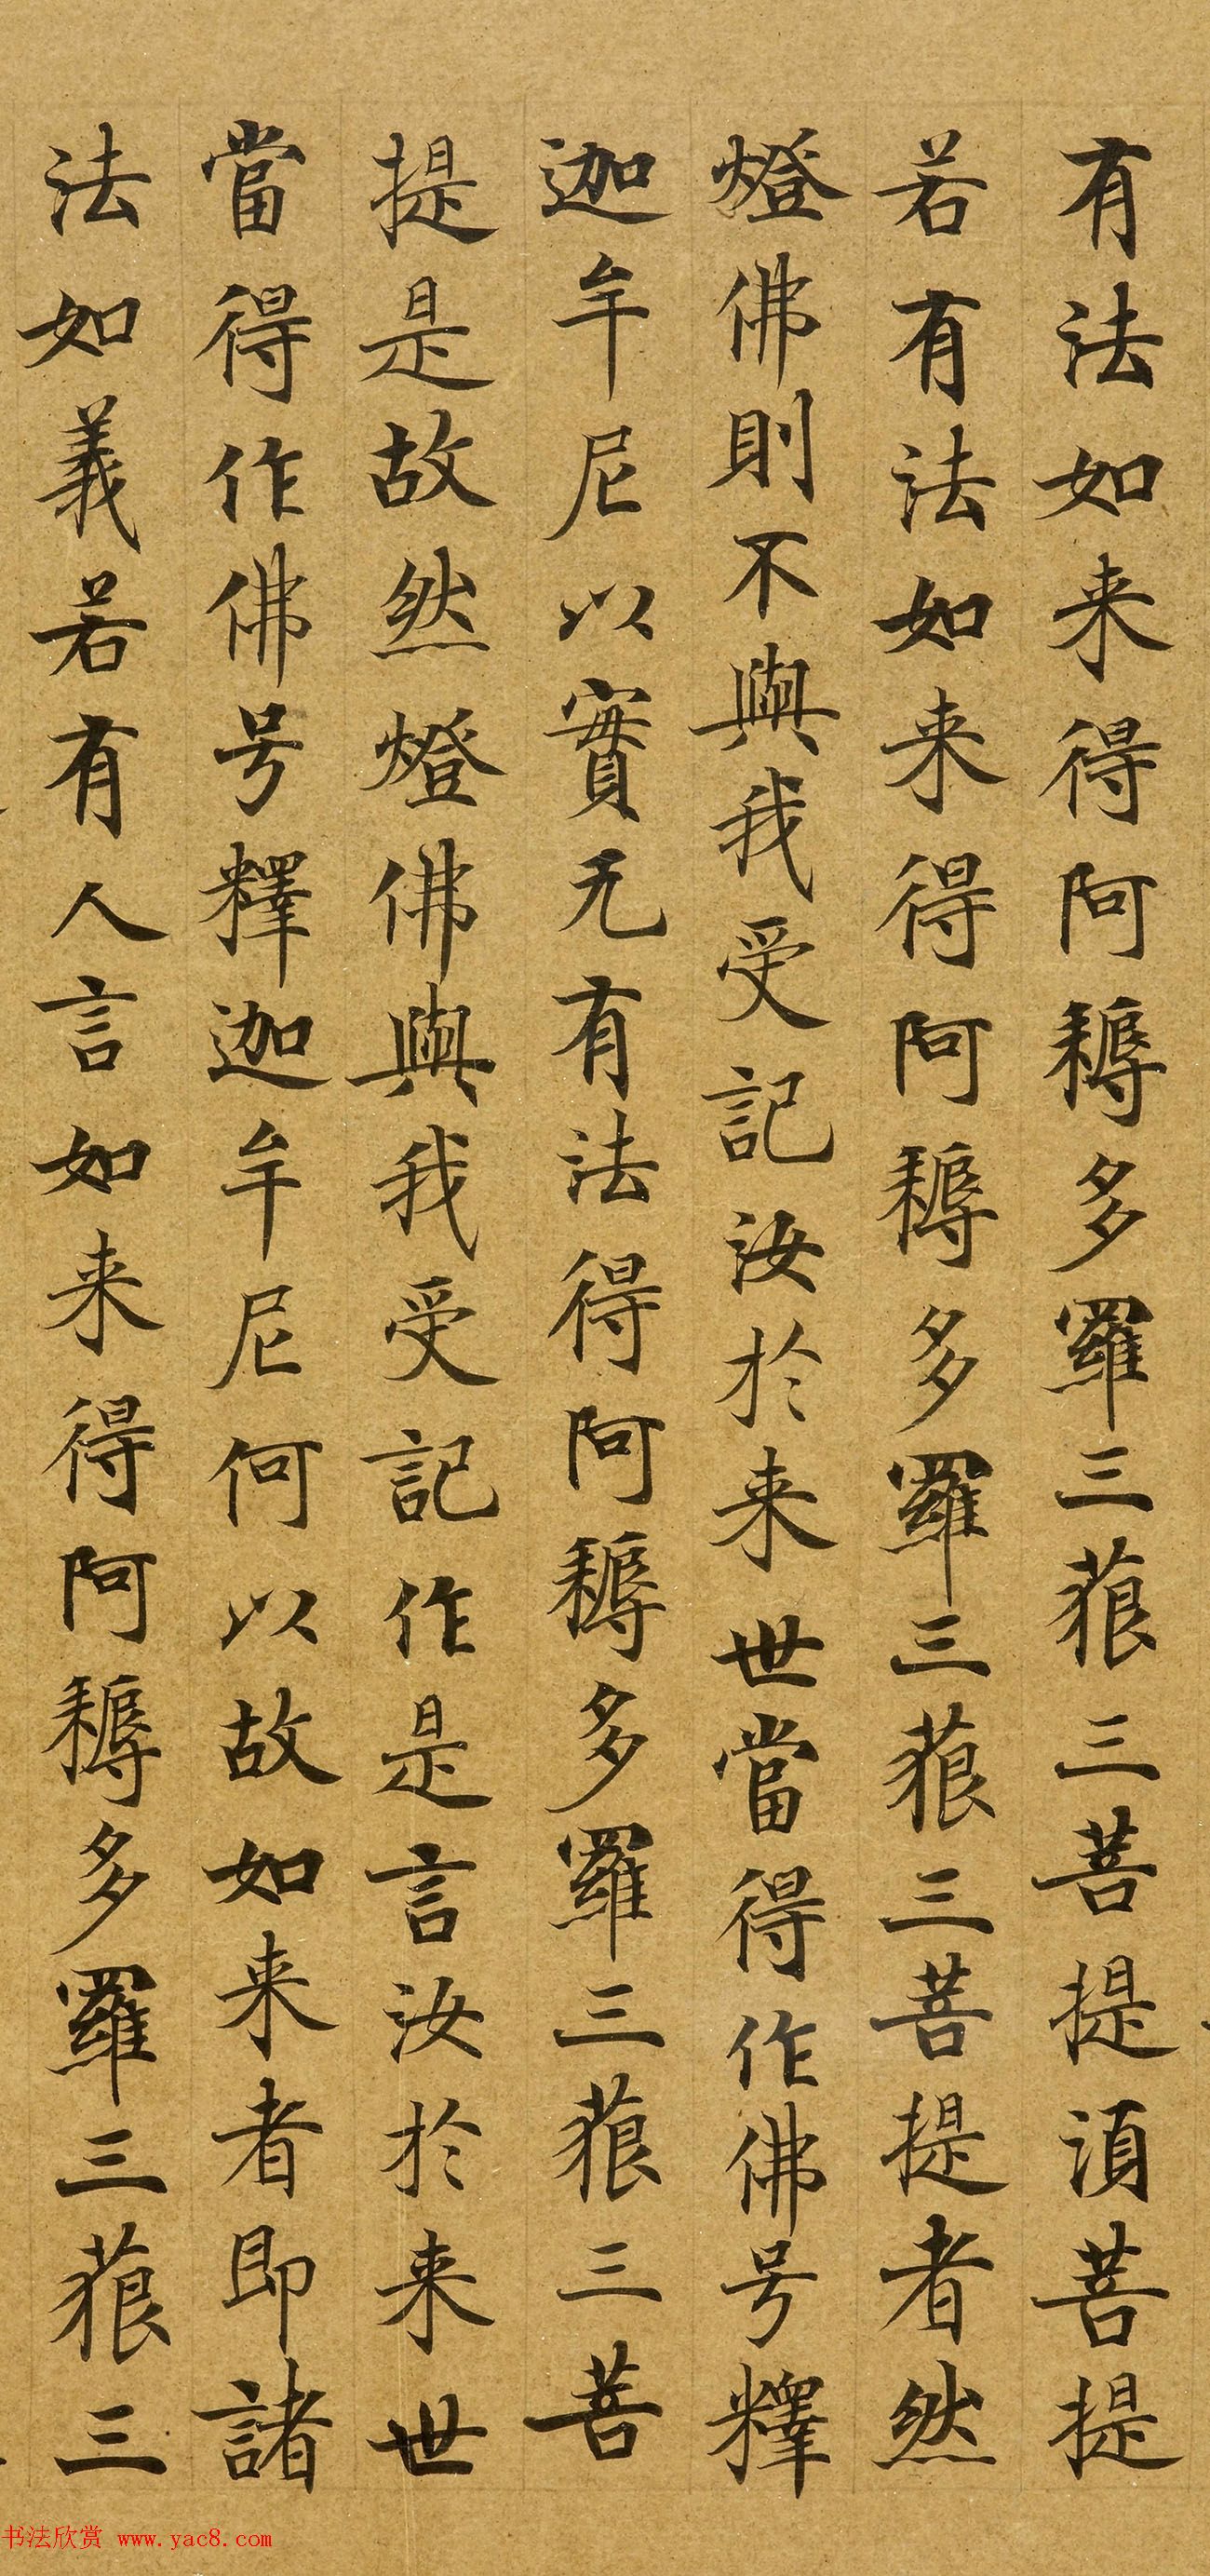 有法如来得阿耨多羅三藐三菩提須菩提
若有法如来得阿耨多羅三藐三菩提者然
燈佛則不與我受記汝於来世當得作佛号釋
迦牟尼以實无有法得阿耨多羅三藐三菩
提是故然燈佛與我受記作是言汝於来世
當得作佛号釋迦牟尼何以故如来者即諸
法如義若有人言如来得阿耨多羅三藐三
书法欣赏 www.yac8.com